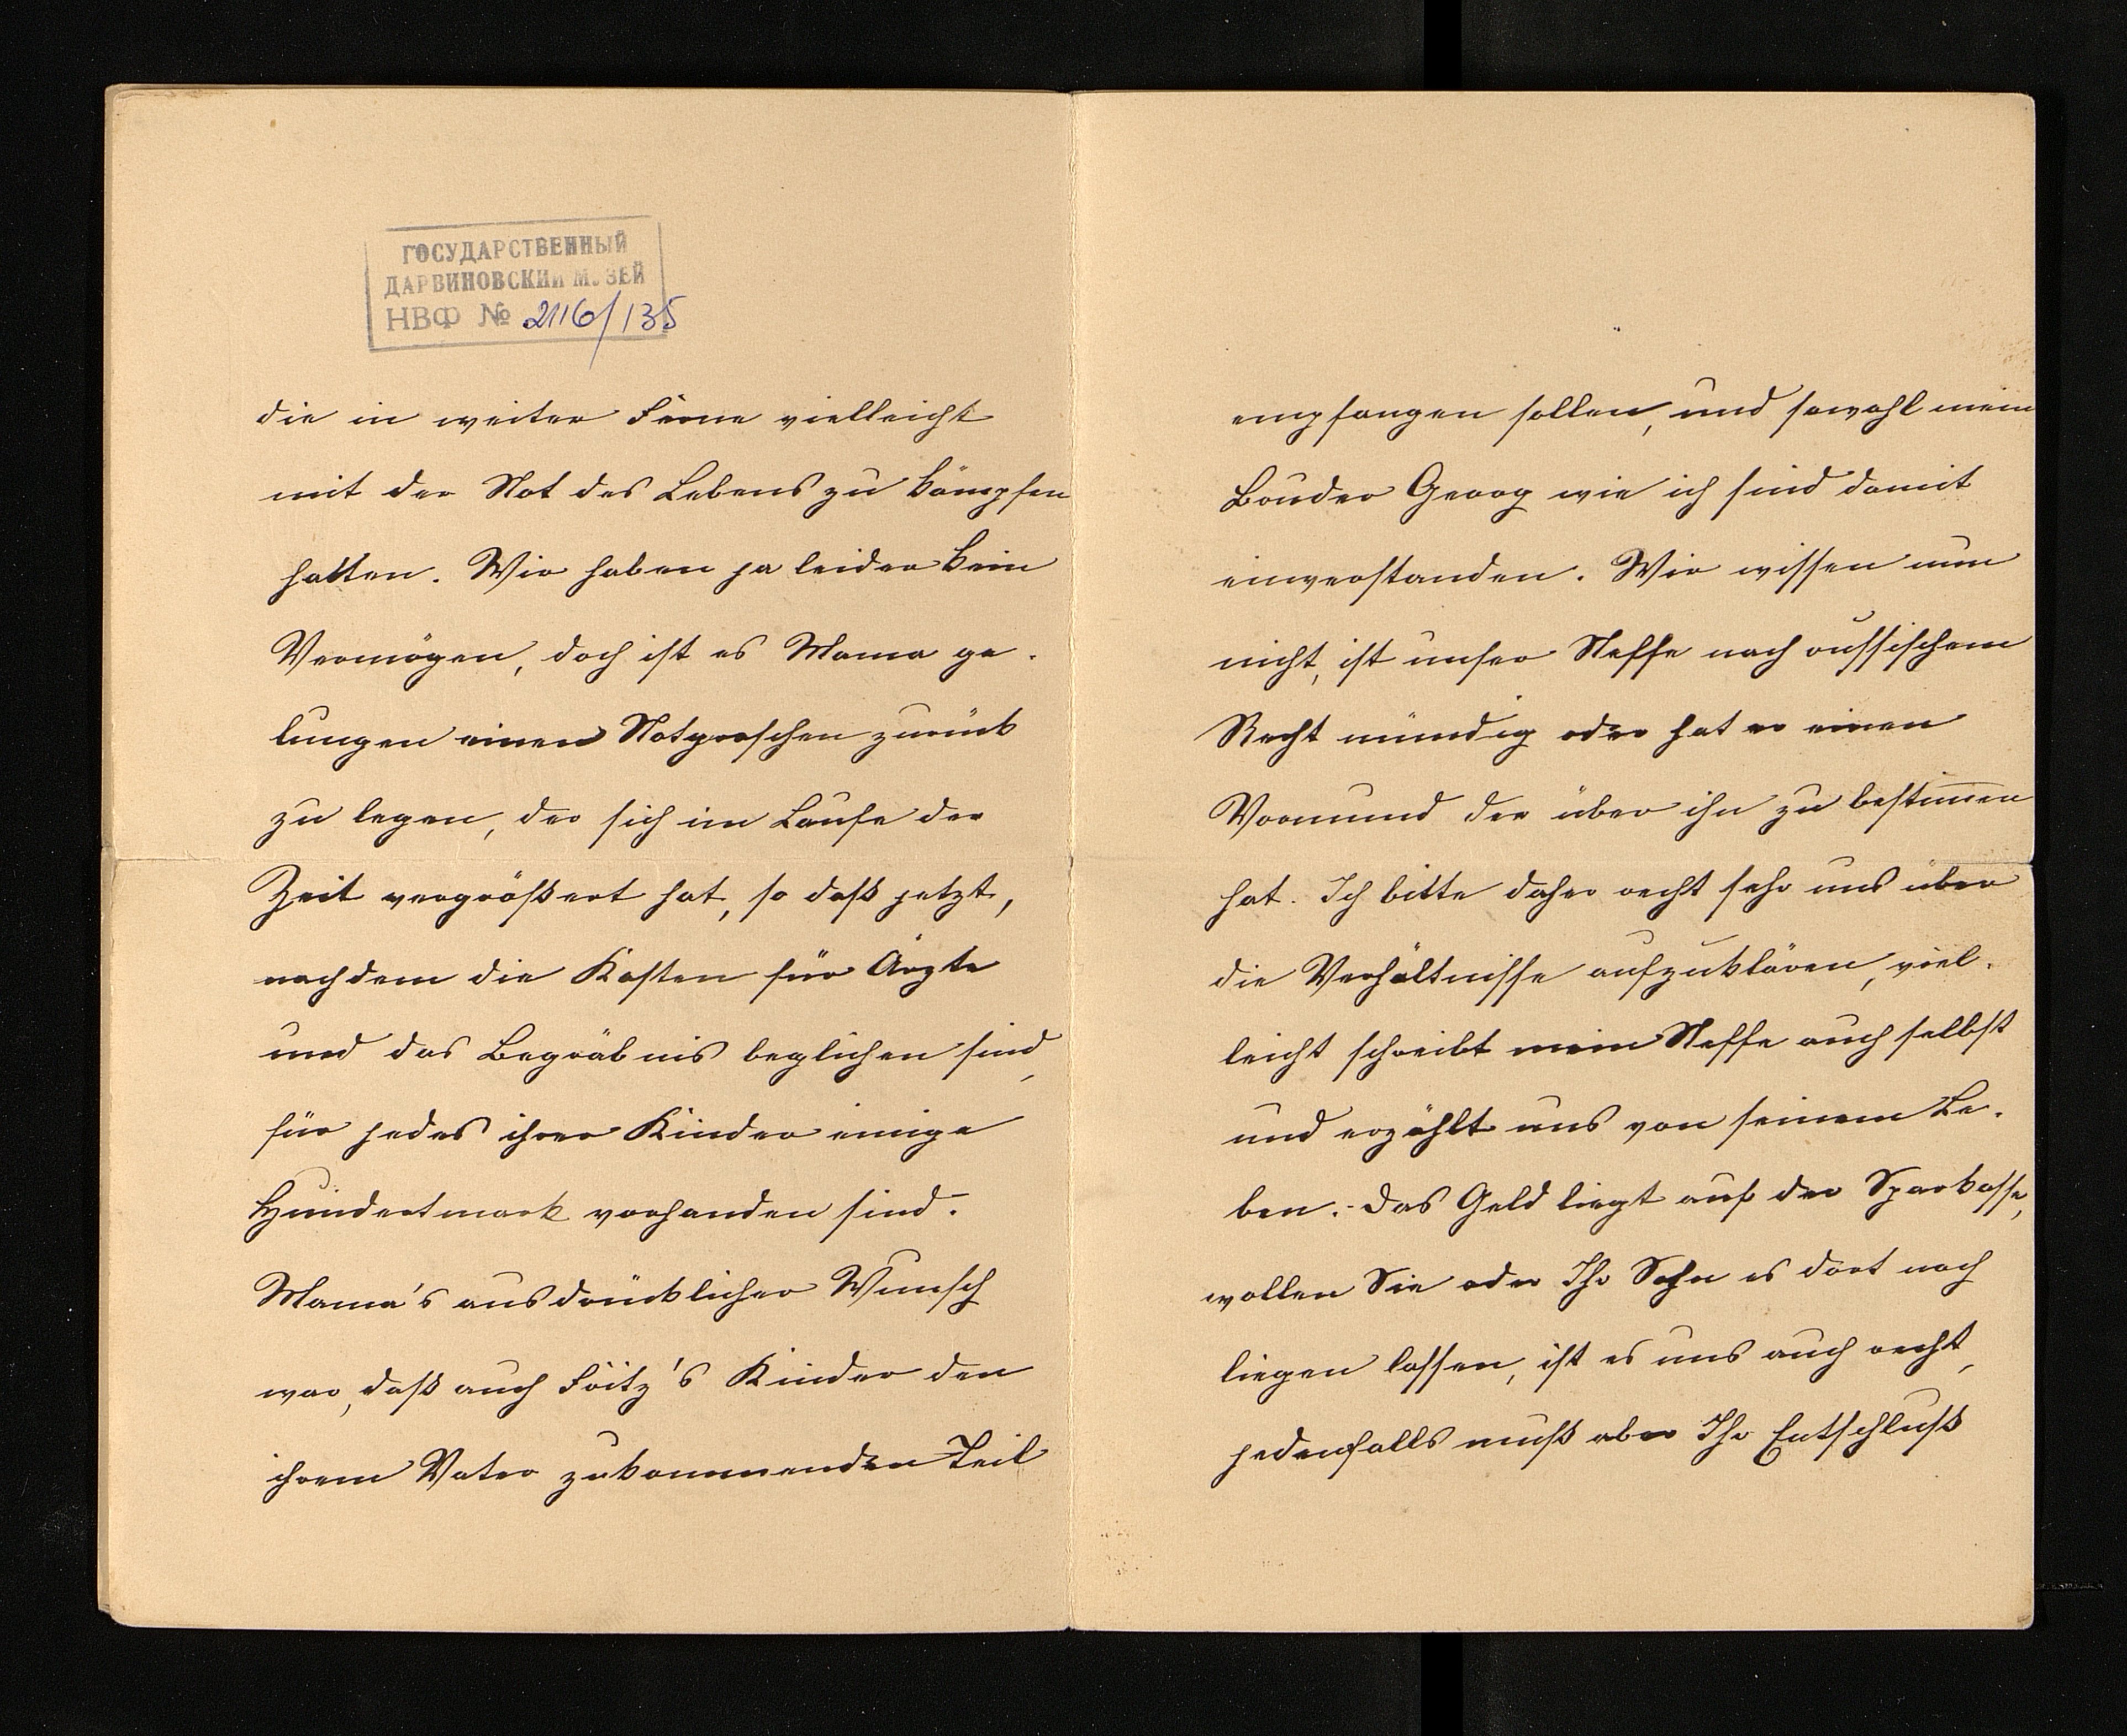 ГОСУДАРСТВЕННЫЙ
ДАРВИНОВСКИЙ МУЗЕЙ
НВФ № 2116/135
die in weiter Ferne vielleicht
mit der Not des Lebens zu kämpfen
hatten. Wir haben ja leider kein
Vermögen, doch ist es Mama ge-
lungen einen Notgroschen zurück
zu legen, der sich im Laufe der
Zeit vergrößert hat, so daß jetzt,
nachdem die Kosten für Ärzte
und das Begräbnis beglichen sind,
für jedes ihrer Kinder einige
Hundertmark vorhanden sind.
Mama's ausdrücklicher Wunsch
war, daß auch Fritz's Kinder den
ihrem Vater zukommenden Teil
empfangen sollen, und sowohl mein
Bruder Georg wie ich sind damit
einverstanden. Wir wissen nun
nicht, ist unser Neffe nach russischem
Recht mündig oder hat er einen
Vormund der über ihn zu bestim̅en
hat. Ich bitte daher recht sehr uns über
die Verhältnisse aufzuklären, viel-
leicht schreibt mein Neffe auch selbst
und erzählt uns von seinem Le-
ben. - Das Geld liegt auf der Sparkasse,
wollen Sie oder Ihr Sohn es dort noch
liegen lassen, ist es uns auch recht,
jedenfalls muß aber Ihr Entschluß